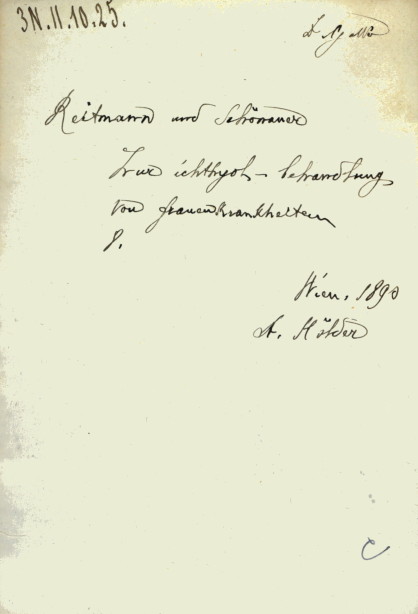 3N.II.10.25.
Reitmann und Schönauer
Zur ichthyol-behandlung
von frauenkrankheiten
8.
Wien, 1890
A. Hölder
C